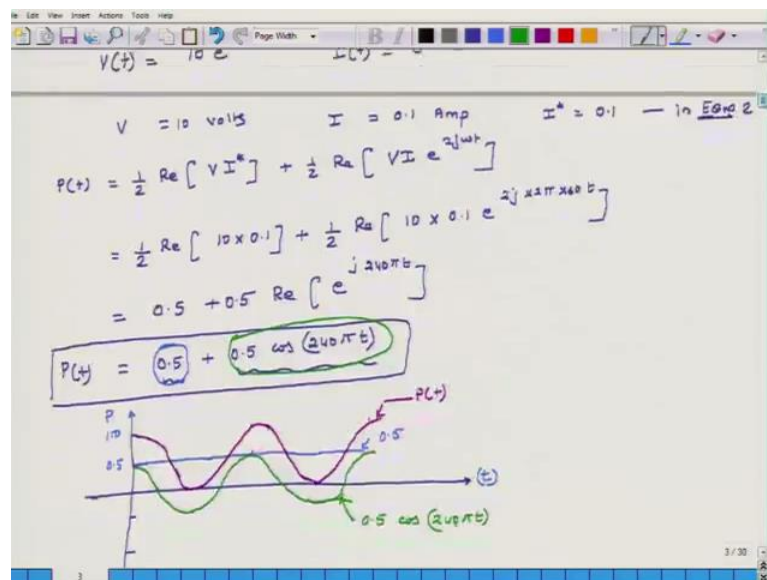 Edit View Insert Actions Tools Help
Page Width
B I
V(t) = 10 e I(t) =
V = 10 volts I = 0.1 Amp I* = 0.1 — in Eqn 2
P(t) = 1/2 Re[ VI* ] + 1/2 Re[ VI e^{2jωt} ]
= 1/2 Re[ 10 x 0.1 ] + 1/2 Re[ 10 x 0.1 e^{2j x 2π x 60 t} ]
= 0.5 + 0.5 Re[ e^{j 240πt} ]
P(t) = 0.5 + 0.5 cos (240πt)
P
P(t)
1.0
0.5
0.5
(t)
0.5 cos (240πt)
3 / 30
3